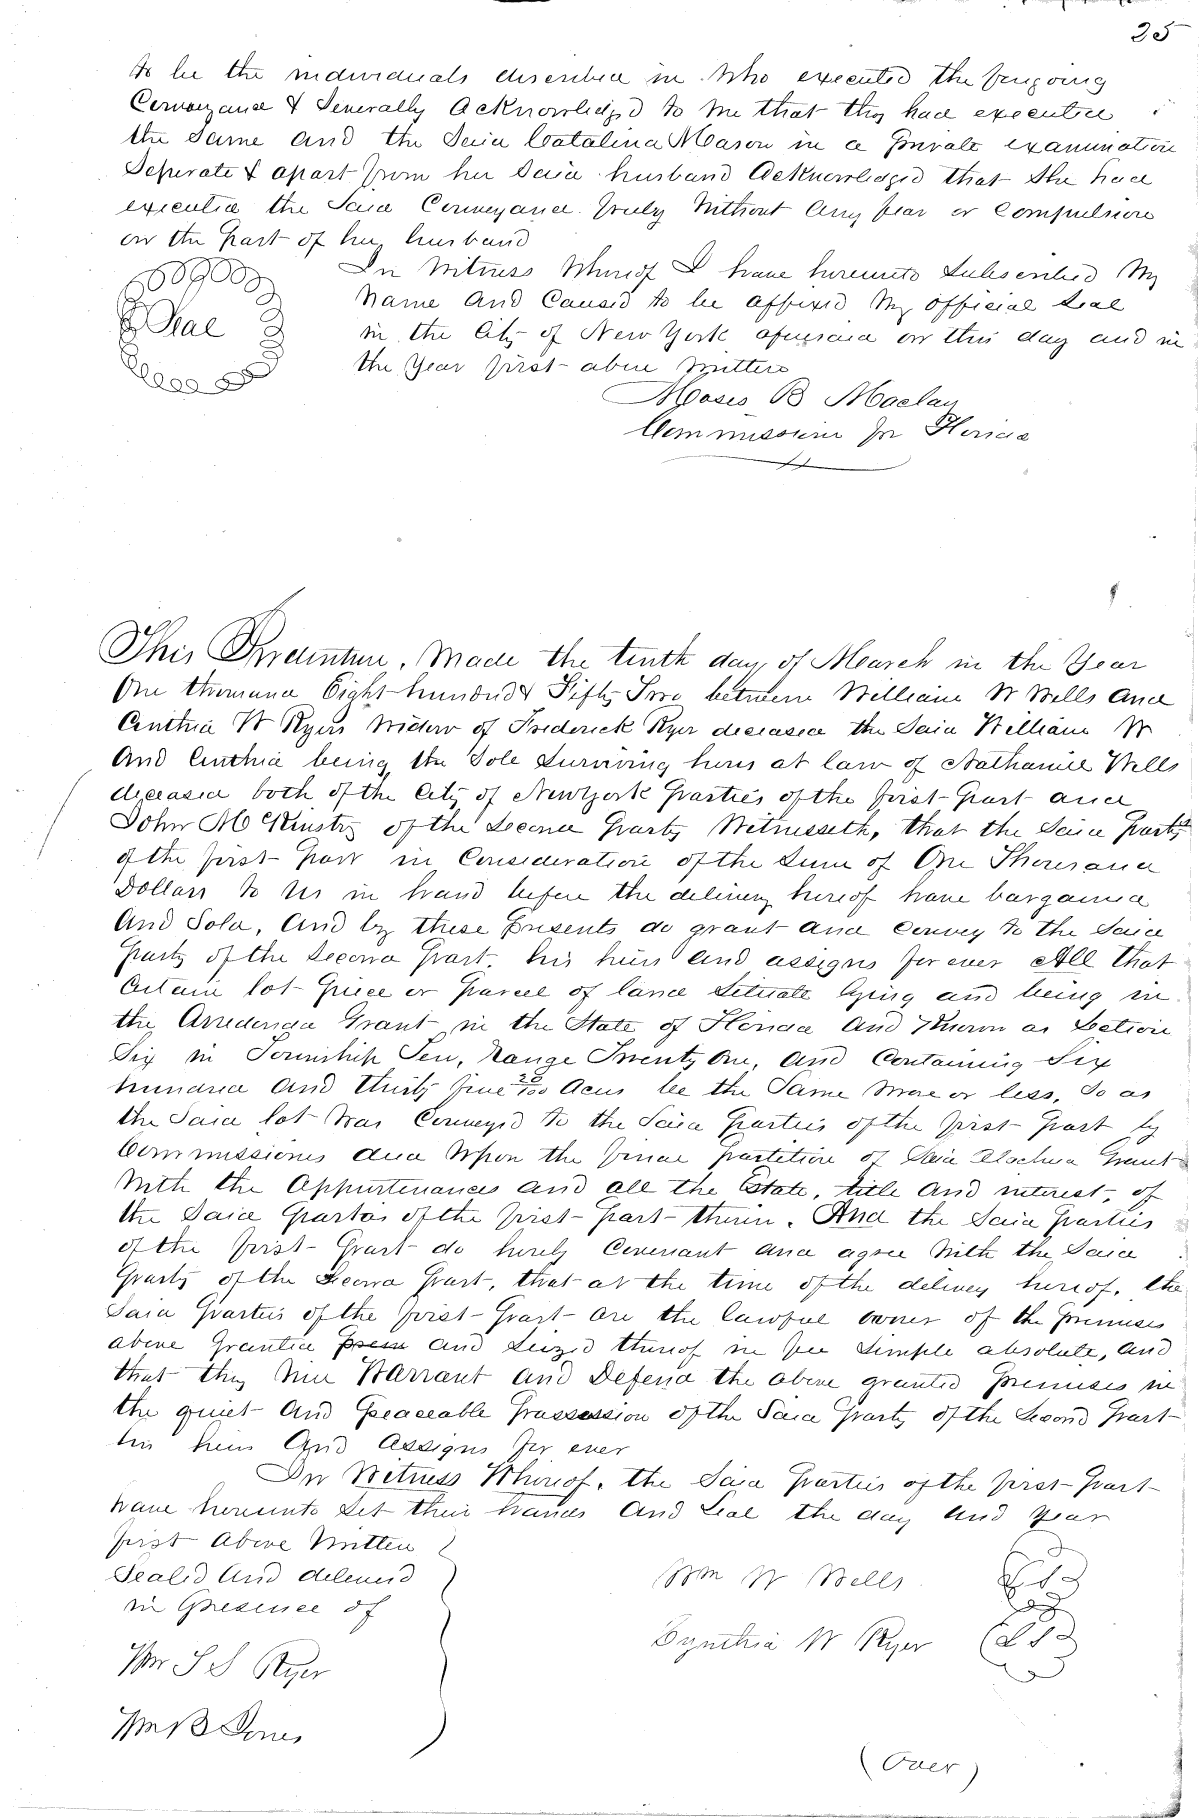 25
to be the individuals described in who executed the foregoing
Conveyance & Severally Acknowledged to me that they had executed
the Same and the Said Catalina Mason in a private examination
Seperate & apart from her Said husband Acknowledged that She had
executed the Said Conveyance freely Without Any fear or Compulsion
on the part of her husband
In Witness Whereof I have hereunto Subscribed My
Name And Caused to be affixed My official Seal
Seal
in the City of New York aforesaid on this day and in
the Year first above written
Moses B Maclay
Commissioner for Florida
This Indenture, Made the tenth day of March in the Year
One thousand Eight hundred & Fifty Two between William W Wells And
Cinthia W Ryer Widow of Frederick Ryer deceased the Said William W
And Cinthia being the Sole Surviving heirs at law of Nathaniel Wells
deceased both of the City of New York Parties of the first Part and
John McKinstry of the Second Party Witnesseth, that the Said Party
of the first Part in Consideration of the Sum of One Thousand
Dollars to us in hand before the delivery hereof have bargained
And Sold, And by these Presents do grant and Convey to the Said
Party of the Second Part his heirs and assigns for ever All that
Certain lot Piece or Parcel of land Situate lying and being in
the Arredondo Grant in the State of Florida And Known as Section
Six in Township Ten, Range Twenty One, And Containing Six
hundred And thirty five 20/100 Acres be the Same More or less, So as
the Said lot Was Conveyed to the Said Parties of the first Part by
Commissioners dua Upon the final Partition of Said Alachua Grant
With the Appurtenances and all the Estate, title And interest, of
the Said Parties of the first Part therein. And the Said Parties
of the first Part do hereby Covenant and agree With the Said
Party of the Second Part, that at the time of the delivery hereof, the
Said Parties of the first Part are the lawful owner of the Premises
above Granted Prem and Seized thereof in fee Simple absolute, and
that they Will Warrant And Defend the above granted Premises in
the quiet And Peaceable Possession of the Said Party of the Second Part
his heirs And Assigns for ever
In Witness Whereof, the Said Parties of the first Part
have hereunto Set their hands And Seal the day And Year
first Above Written
Sealed And delivered
in Presence of
Wm W Wells LS
Cynthia W Ryer LS
Wm S S Ryer
Wm B Jones
(Over)